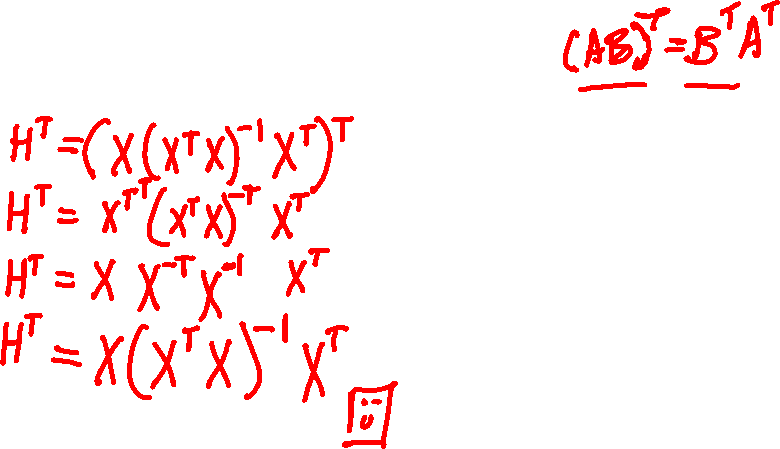 (AB)ᵀ = BᵀAᵀ
Hᵀ = (X(XᵀX)⁻¹Xᵀ)ᵀ
Hᵀ = Xᵀᵀ(XᵀX)⁻ᵀ Xᵀ
Hᵀ = X X⁻ᵀX⁻¹ Xᵀ
Hᵀ = X(XᵀX)⁻¹Xᵀ